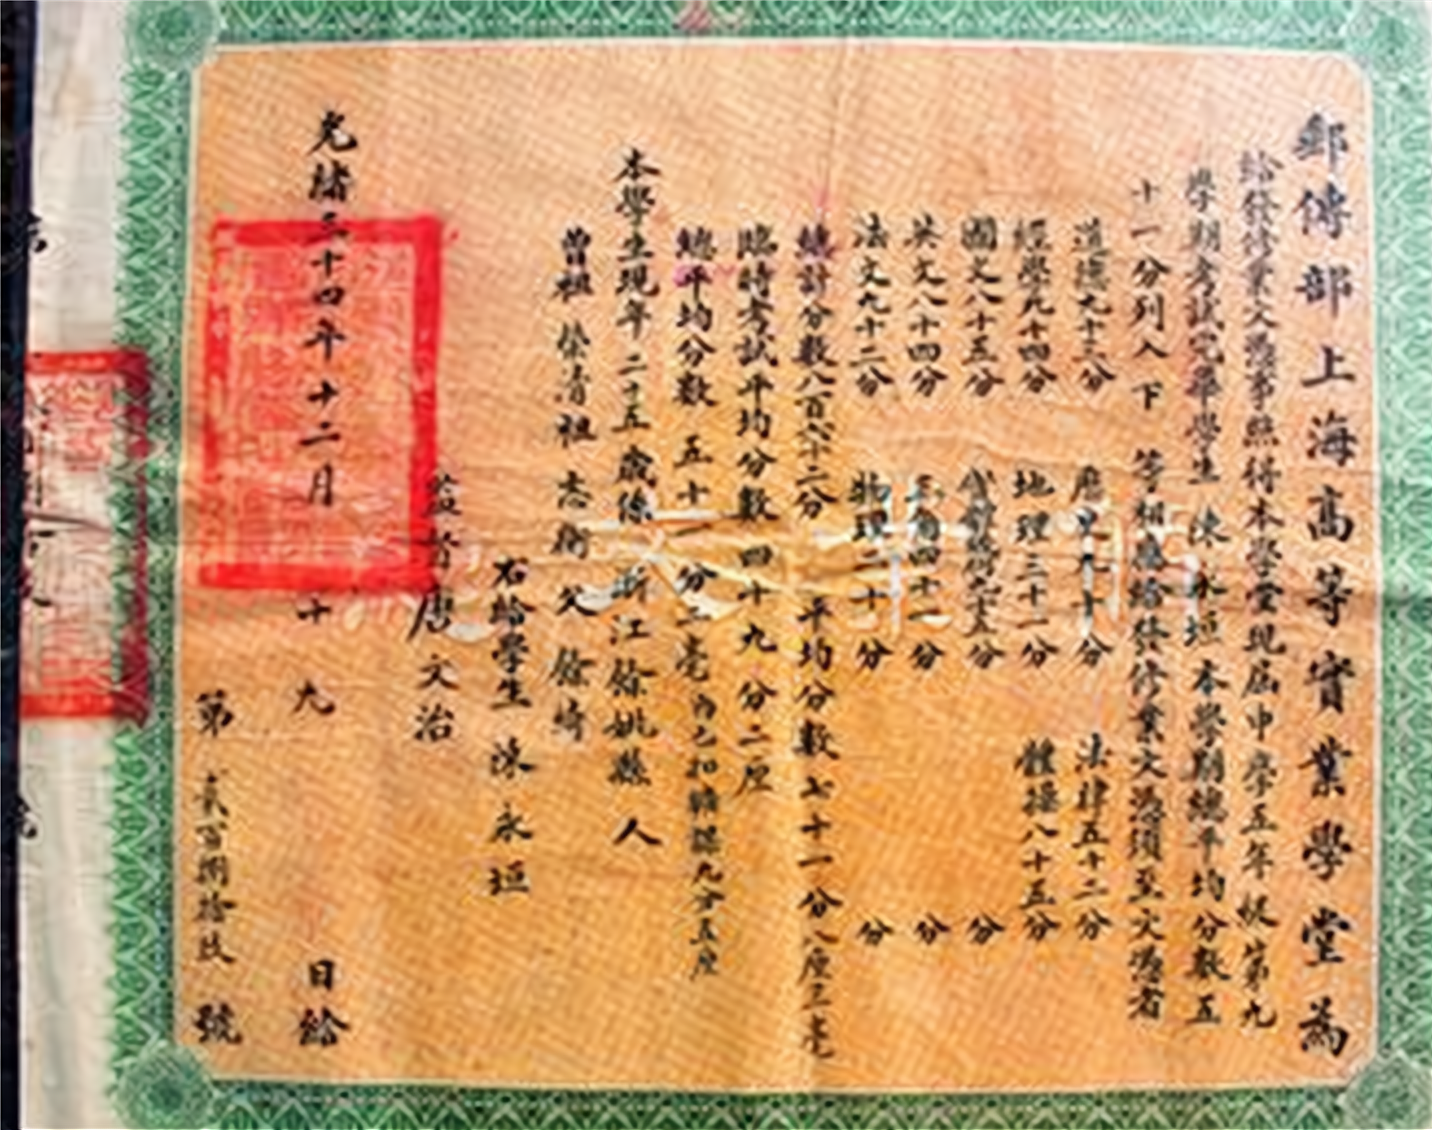 郵傳部上海高等實業學堂為
給發修業文憑事照得本學堂現屆中學五年級第九
學期考試完畢學生 陳永垣 本學期總平均分數五
十一分列入 下 等相應給發修業文憑須至文憑者
道德九十三分 歷史九十分 法律五十二分
經學九十四分 地理三十一分 體操八十五分
國文八十五分 分 分
英文八十四分 三角四十一分 分
法文九十二分 物理二十分 分
總計分數八百六十二分 平均分數七十一分八厘三毫
臨時考試平均分數 四十九分二厘
總平均分數 五十一分一毫 內已扣曠課九分五厘
本學生現年二十五歲係浙江餘姚縣人
曾祖 榮清 祖 志衡 父 餘崎
右給學生 陳永垣
監督唐文治
光緒三十四年十二月十九日給
第 貳百捌拾玖 號